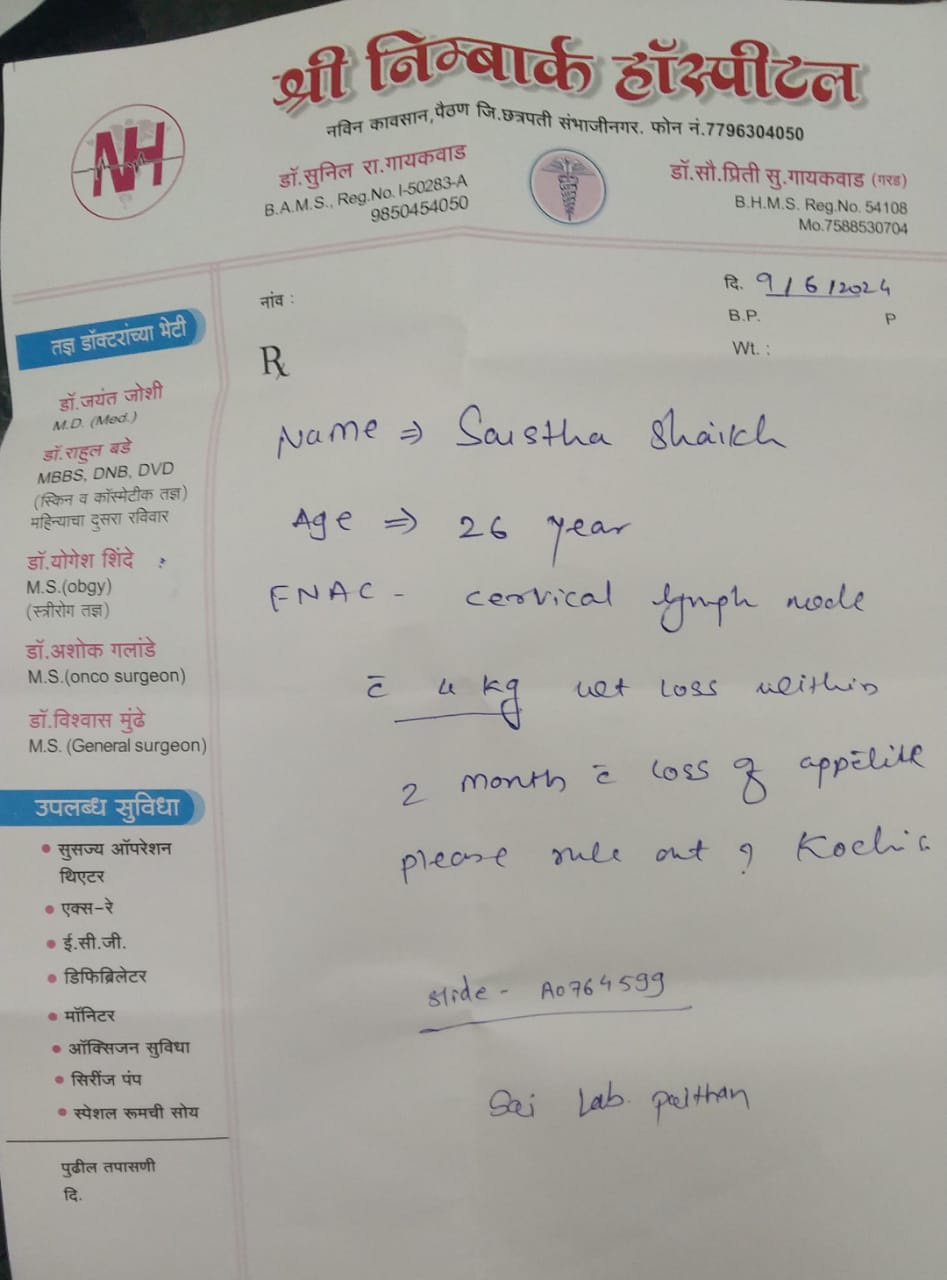 श्री निम्बार्क हॉस्पीटल
नविन कावसान,पैठण जि.छत्रपती संभाजीनगर. फोन नं.7796304050
NH
डॉ.सुनिल रा.गायकवाड
B.A.M.S., Reg.No. I-50283-A
9850454050
डॉ.सौ.प्रिती सु.गायकवाड (गरड)
B.H.M.S. Reg.No. 54108
Mo.7588530704
नांव :
दि. 9/6/2024
B.P. P
Wt. :
तज्ञ डॉक्टरांच्या भेटी
डॉ.जयंत जोशी
M.D. (Med.)
डॉ.राहुल बडे
MBBS, DNB, DVD
(स्किन व कॉस्मेटीक तज्ञ)
महिन्याचा दुसरा रविवार
डॉ.योगेश शिंदे
M.S.(obgy)
(स्त्रीरोग तज्ञ)
डॉ.अशोक गलांडे
M.S.(onco surgeon)
डॉ.विश्वास मुंढे
M.S. (General surgeon)
उपलब्ध सुविधा
• सुसज्य ऑपरेशन
थिएटर
• एक्स-रे
• ई.सी.जी.
• डिफिब्रिलेटर
• मॉनिटर
• ऑक्सिजन सुविधा
• सिरींज पंप
• स्पेशल रूमची सोय
पुढील तपासणी
दि.
℞
Name ⇒ Saistha Shaikh
Age ⇒ 26 year
FNAC - cervical lymph node
c̄ 4 kg wt loss within
2 month c̄ loss of appetite
please rule out ? Koch's
slide - A0764599
Sai Lab. paithan